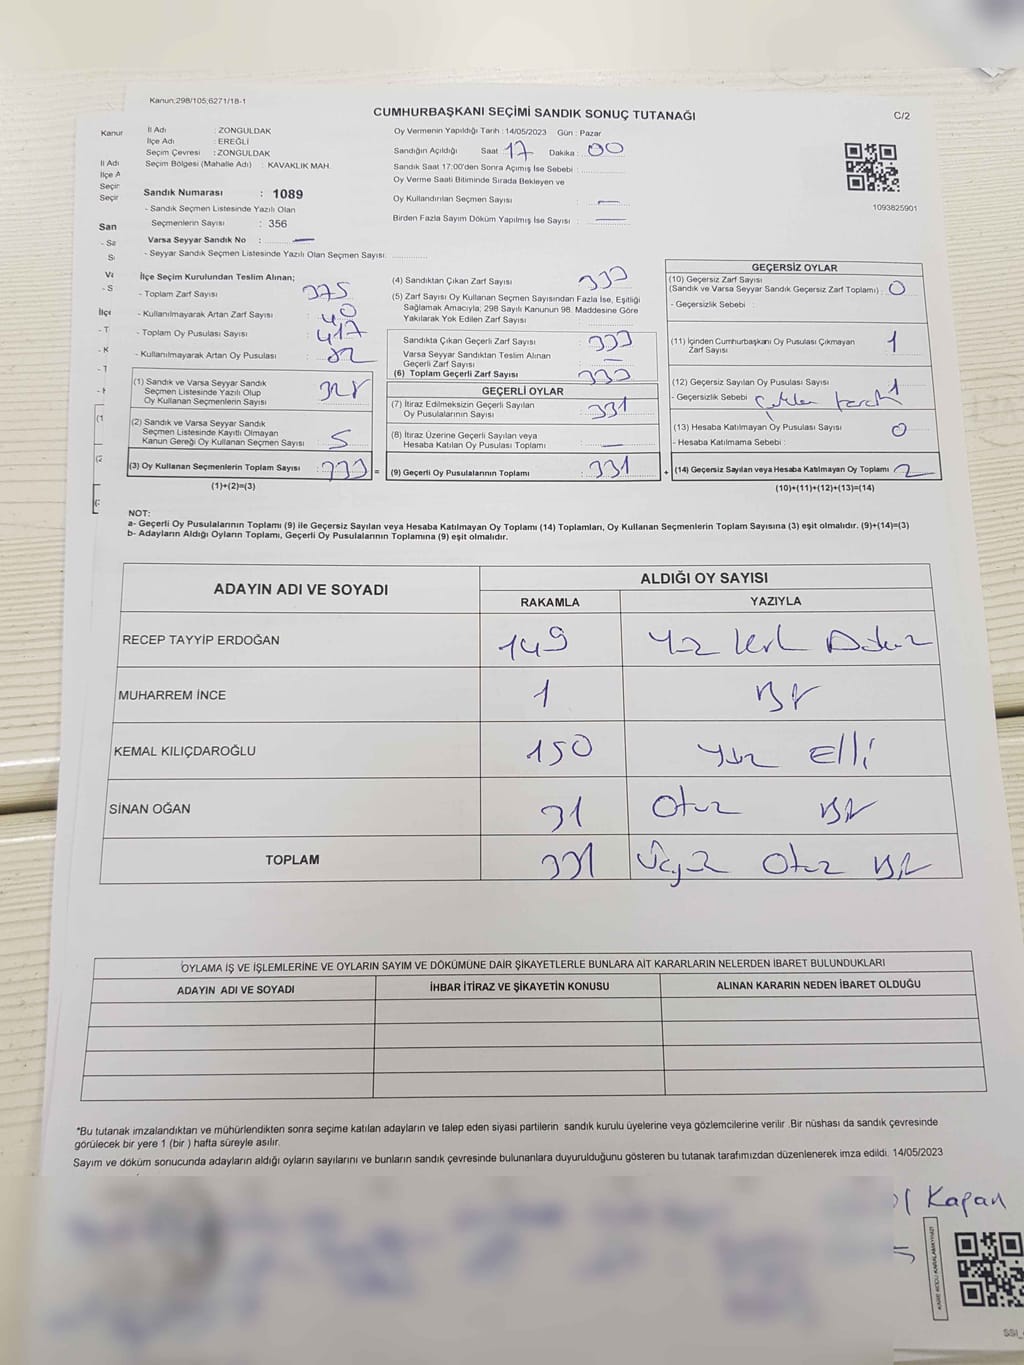 Kanun;298/105;6271/18-1
CUMHURBAŞKANI SEÇİMİ SANDIK SONUÇ TUTANAĞI
C/2
İl Adı : ZONGULDAK
İlçe Adı : EREĞLİ
Seçim Çevresi : ZONGULDAK
Seçim Bölgesi (Mahalle Adı) : KAVAKLIK MAH.
Sandık Numarası : 1089
- Sandık Seçmen Listesinde Yazılı Olan
Seçmenlerin Sayısı : 356
Varsa Seyyar Sandık No : —
- Seyyar Sandık Seçmen Listesinde Yazılı Olan Seçmen Sayısı:
Oy Vermenin Yapıldığı Tarih : 14/05/2023 Gün : Pazar
Sandığın Açıldığı Saat 17 Dakika : 00
Sandık Saat 17:00'den Sonra Açımış İse Sebebi :
Oy Verme Saati Bitiminde Sırada Bekleyen ve
Oy Kullandırılan Seçmen Sayısı : —
Birden Fazla Sayım Döküm Yapılmış İse Sayısı : —
1093825901
İlçe Seçim Kurulundan Teslim Alınan;
- Toplam Zarf Sayısı : 375
- Kullanılmayarak Artan Zarf Sayısı : 40
- Toplam Oy Pusulası Sayısı : 417
- Kullanılmayarak Artan Oy Pusulası : 82
(1) Sandık ve Varsa Seyyar Sandık
Seçmen Listesinde Yazılı Olup
Oy Kullanan Seçmenlerin Sayısı : 328
(2) Sandık ve Varsa Seyyar Sandık
Seçmen Listesinde Kayıtlı Olmayan
Kanun Gereği Oy Kullanan Seçmen Sayısı : 5
(3) Oy Kullanan Seçmenlerin Toplam Sayısı : 333 =
(1)+(2)=(3)
(4) Sandıktan Çıkan Zarf Sayısı : 333
(5) Zarf Sayısı Oy Kullanan Seçmen Sayısından Fazla İse, Eşitliği
Sağlamak Amacıyla; 298 Sayılı Kanunun 98. Maddesine Göre
Yakılarak Yok Edilen Zarf Sayısı :
Sandıkta Çıkan Geçerli Zarf Sayısı : 333
Varsa Seyyar Sandıktan Teslim Alınan
Geçerli Zarf Sayısı : —
(6) Toplam Geçerli Zarf Sayısı : 333
GEÇERLİ OYLAR
(7) İtiraz Edilmeksizin Geçerli Sayılan
Oy Pusulalarının Sayısı : 331
(8) İtiraz Üzerine Geçerli Sayılan veya
Hesaba Katılan Oy Pusulası Toplamı : —
(9) Geçerli Oy Pusulalarının Toplamı : 331 +
GEÇERSİZ OYLAR
(10) Geçersiz Zarf Sayısı
(Sandık ve Varsa Seyyar Sandık Geçersiz Zarf Toplamı) : 0
- Geçersizlik Sebebi :
(11) İçinden Cumhurbaşkanı Oy Pusulası Çıkmayan
Zarf Sayısı : 1
(12) Geçersiz Sayılan Oy Pusulası Sayısı : 1
- Geçersizlik Sebebi :
(13) Hesaba Katılmayan Oy Pusulası Sayısı : 0
- Hesaba Katılmama Sebebi :
(14) Geçersiz Sayılan veya Hesaba Katılmayan Oy Toplamı : 2
(10)+(11)+(12)+(13)=(14)
NOT:
a- Geçerli Oy Pusulalarının Toplamı (9) ile Geçersiz Sayılan veya Hesaba Katılmayan Oy Toplamı (14) Toplamları, Oy Kullanan Seçmenlerin Toplam Sayısına (3) eşit olmalıdır. (9)+(14)=(3)
b- Adayların Aldığı Oyların Toplamı, Geçerli Oy Pusulalarının Toplamına (9) eşit olmalıdır.
ADAYIN ADI VE SOYADI ALDIĞI OY SAYISI
RAKAMLA YAZIYLA
RECEP TAYYİP ERDOĞAN 149 Yüz kırk Dokuz
MUHARREM İNCE 1 Bir
KEMAL KILIÇDAROĞLU 150 Yüz Elli
SİNAN OĞAN 31 Otuz Bir
TOPLAM 331 Üçyüz Otuz Bir
OYLAMA İŞ VE İŞLEMLERİNE VE OYLARIN SAYIM VE DÖKÜMÜNE DAİR ŞİKAYETLERLE BUNLARA AİT KARARLARIN NELERDEN İBARET BULUNDUKLARI
ADAYIN ADI VE SOYADI İHBAR İTİRAZ VE ŞİKAYETİN KONUSU ALINAN KARARIN NEDEN İBARET OLDUĞU
*Bu tutanak imzalandıktan ve mühürlendikten sonra seçime katılan adayların ve talep eden siyasi partilerin sandık kurulu üyelerine veya gözlemcilerine verilir .Bir nüshası da sandık çevresinde
görülecek bir yere 1 (bir ) hafta süreyle asılır.
Sayım ve döküm sonucunda adayların aldığı oyların sayılarını ve bunların sandık çevresinde bulunanlara duyurulduğunu gösteren bu tutanak tarafımızdan düzenlenerek imza edildi. 14/05/2023
Kapan